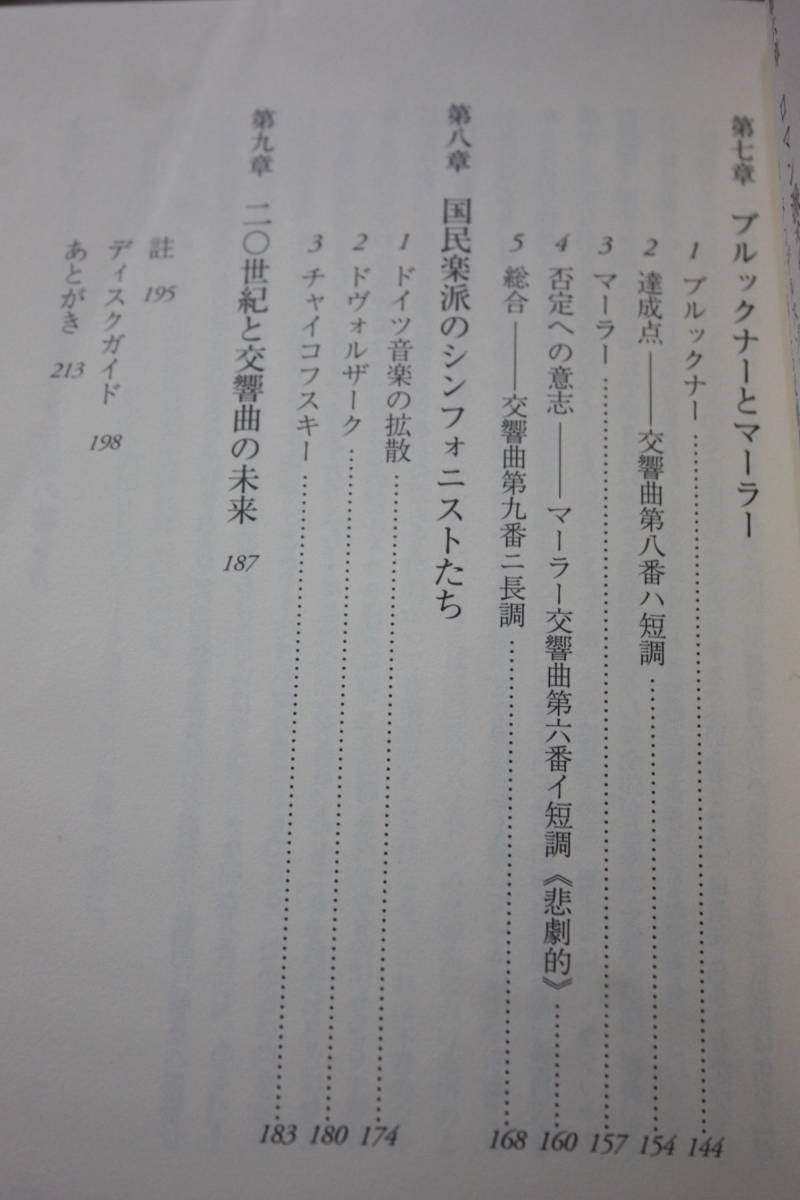 第七章 ブルックナーとマーラー
1 ブルックナー…………144
2 達成点――交響曲第八番ハ短調…………154
3 マーラー…………157
4 否定への意志――マーラー交響曲第六番イ短調《悲劇的》…………160
5 総合――交響曲第九番ニ長調…………168
第八章 国民楽派のシンフォニストたち
1 ドイツ音楽の拡散…………174
2 ドヴォルザーク…………180
3 チャイコフスキー…………183
第九章 二〇世紀と交響曲の未来 187
註 195
ディスクガイド 198
あとがき 213